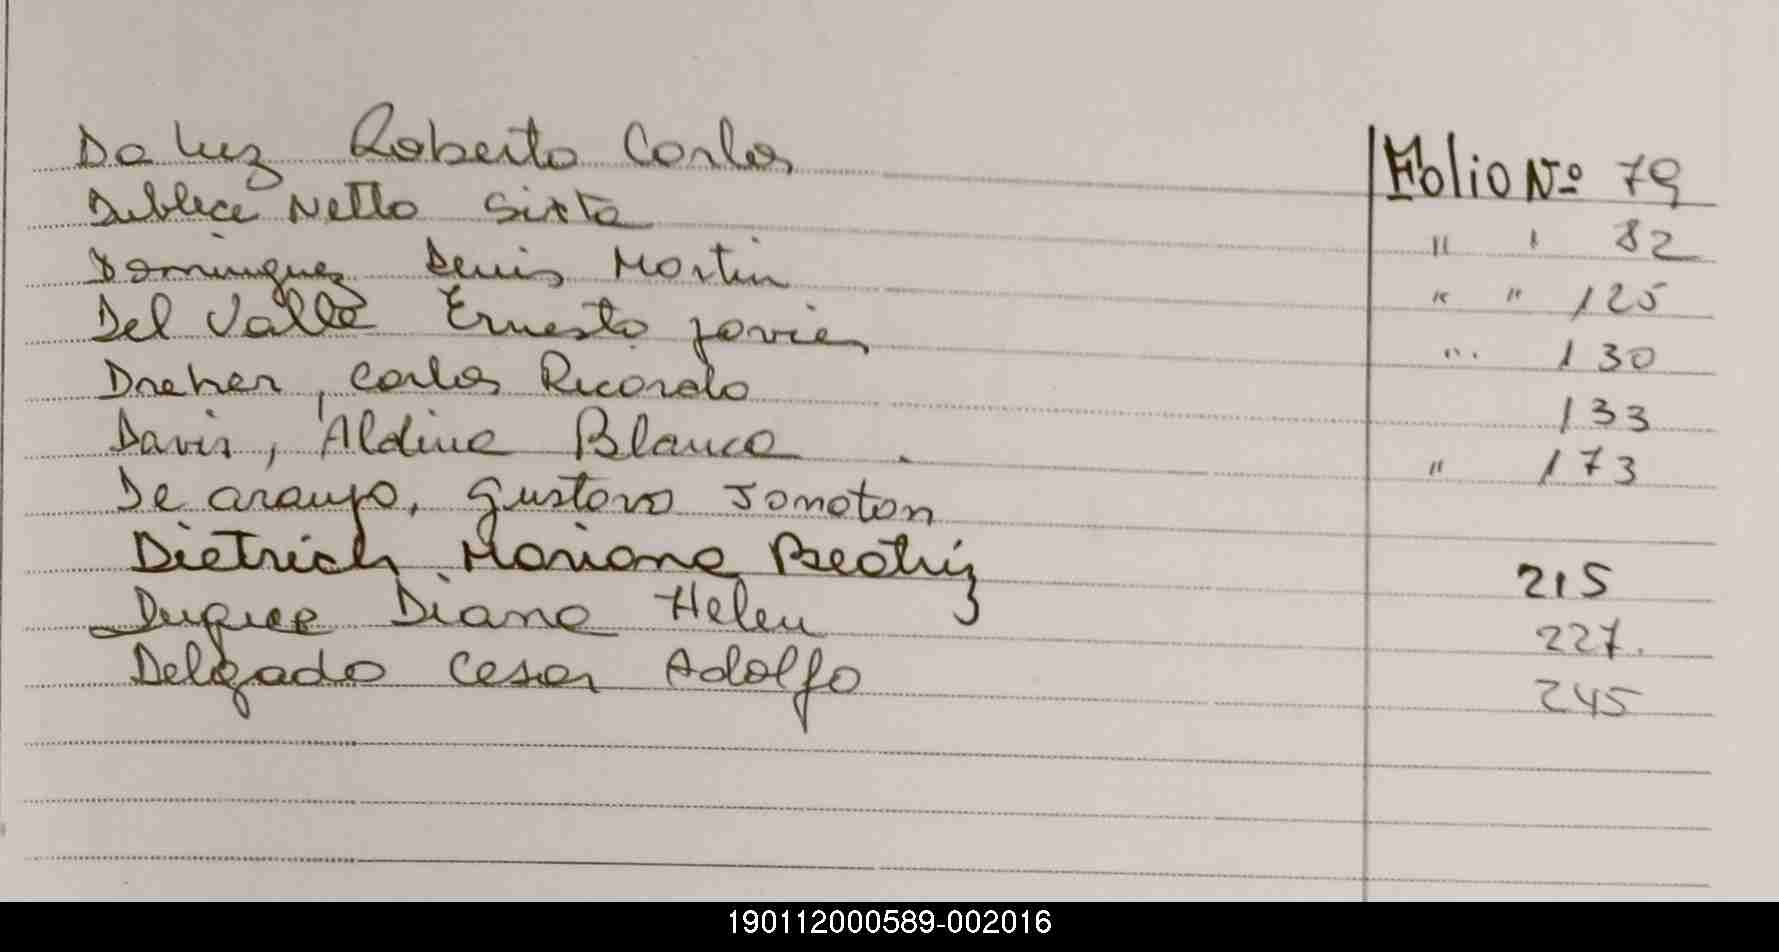 Da Luz Roberto Carlos Folio Nº 79
Dublece Netto Sixta " " 82
Dominguez Denis Martin " " 125
Del Valle Ernesto Javier " 130
Dreher, Carlos Ricardo 133
Davis, Aldina Blanca . " 173
De araujo, Gustavo Jonatan
Dietrich Mariana Beatriz 215
Duque Diana Helen 227.
Delgado Cesar Adolfo 245
190112000589-002016